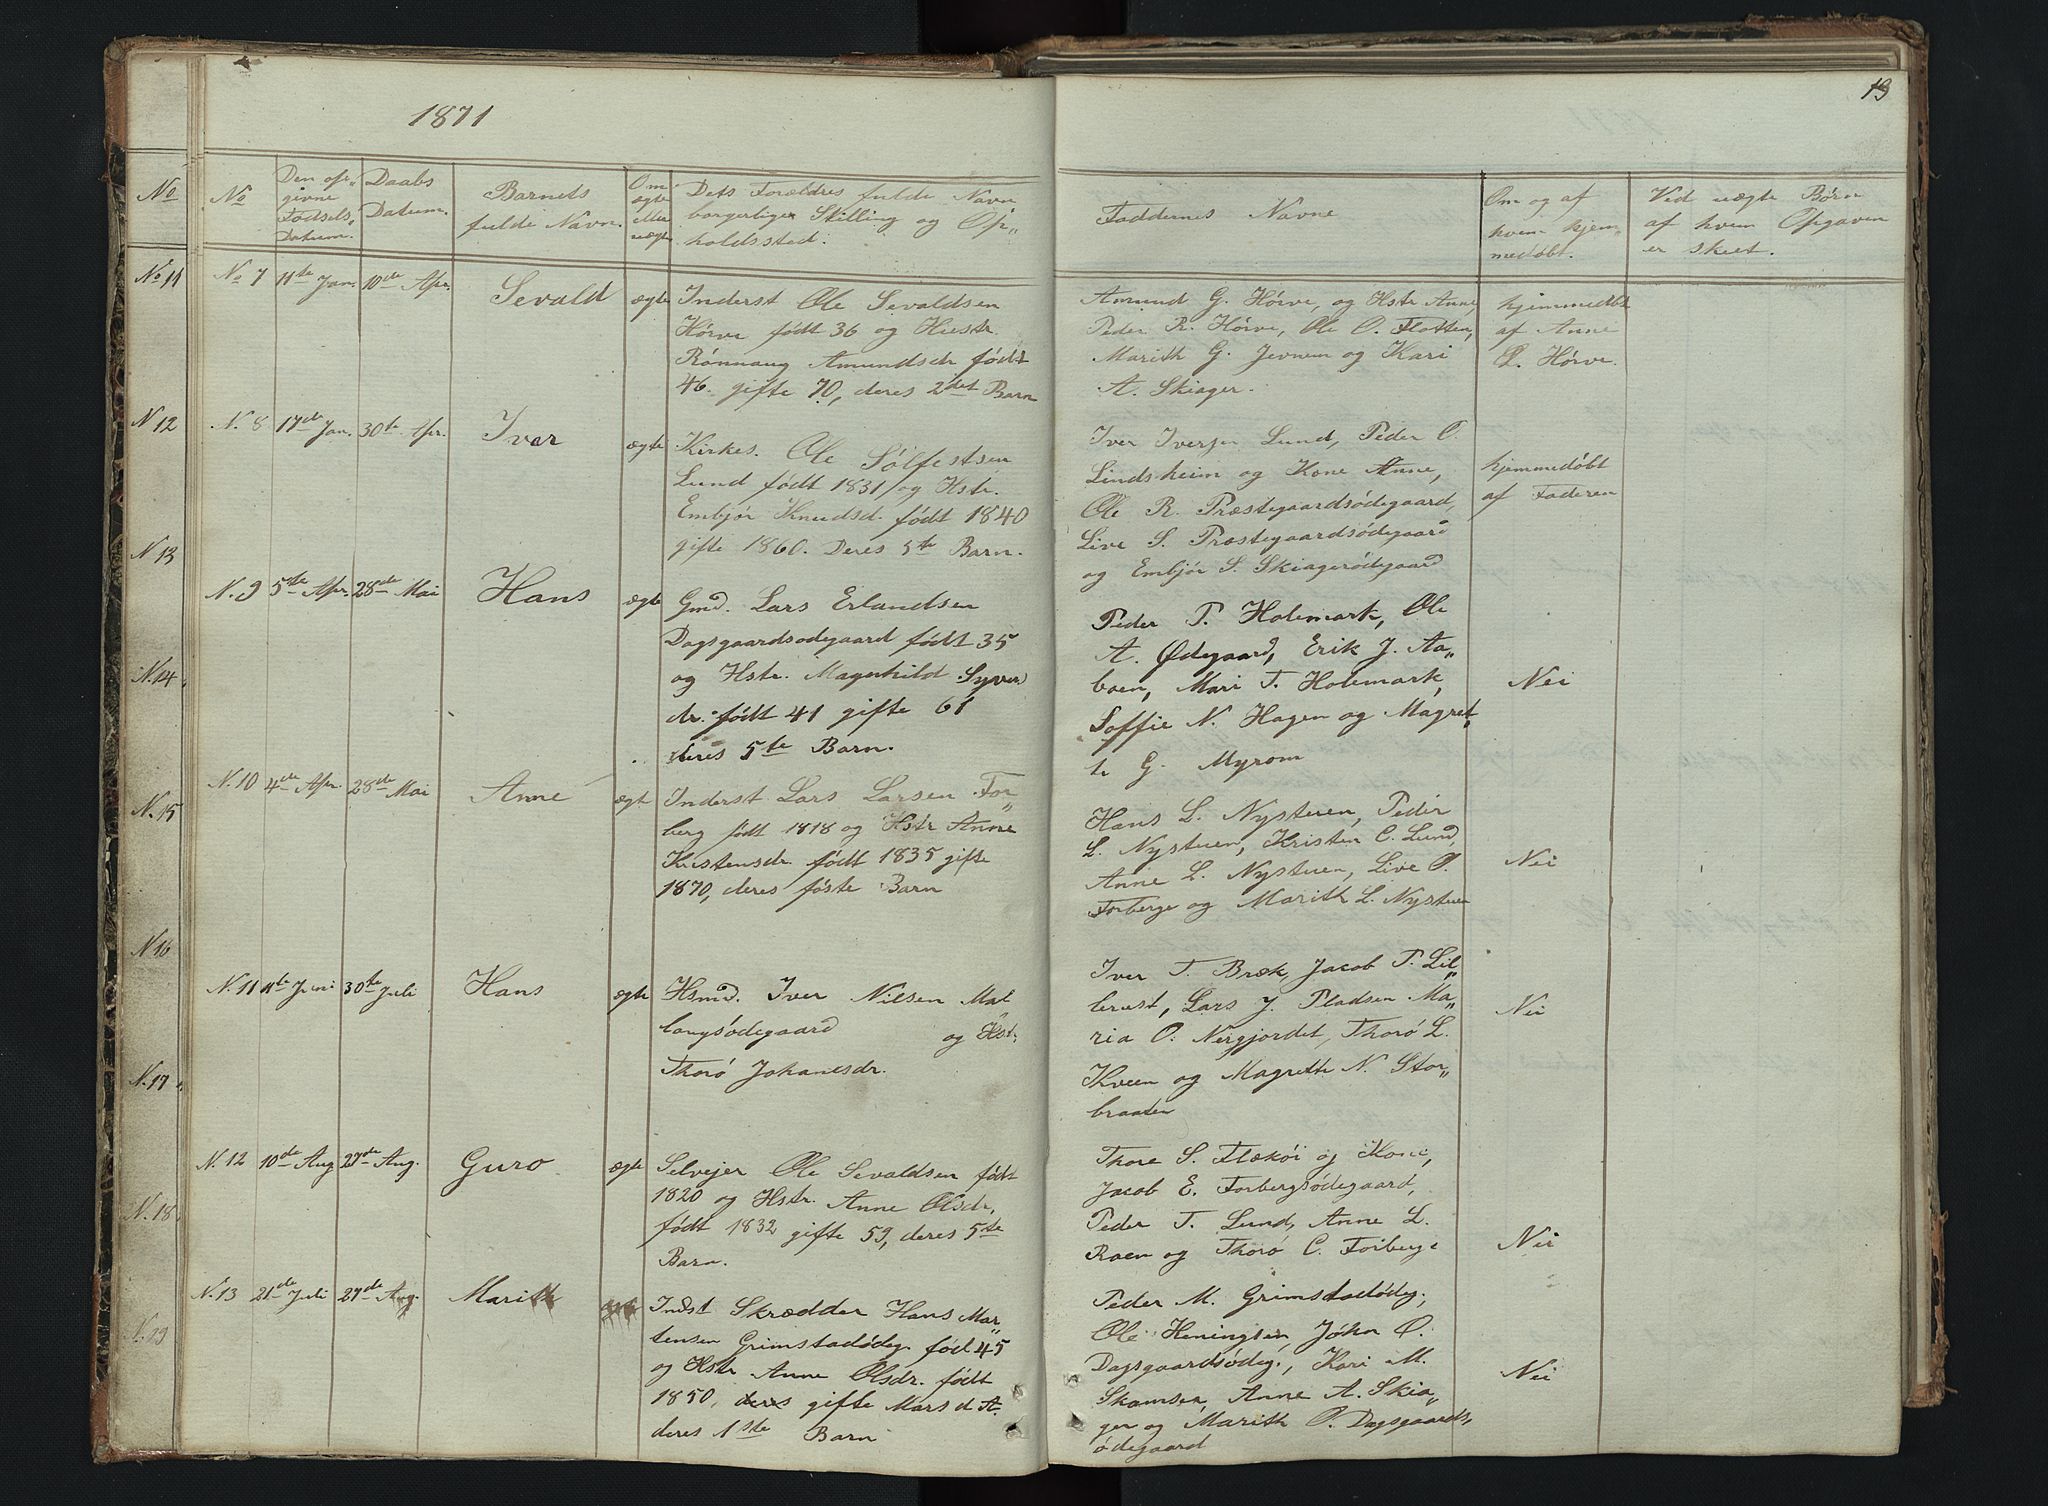 1871
13
No
No
Den op„
givne
Fødsels„
Datum.
Daabs
Datum.
Barnets
fulde Navn.
Om
ægte
eller
uægte
Dets Forældres fulde Navn
borgerliger Stilling og Op„
holdssted.
Faddernes Navne
Om og af
hvem hjem„
medøbt.
Ved uægte Børn
af hvem Opgaven
er skeet.
No 11
No 7 11te Jan. 10de Apr. Sevald ægte
Inderst Ole Sevaldsen
Hørve født 36 og Hustr.
Rönnaug Amundsdr født
46 gifte 70, deres 2det Barn
Amund G. Hörve, og Hstr Anne,
Peder R. Hörve, Ole O. Flotten,
Marith G. Jevnen og Kari
A. Skiager.
hjemmedöbt
af Anne
L. Hörve.
N 12
N. 8 17de Jan. 30te Apr. Iver ægte
Kirkes. Ole Sölfestsen
Lund født 1831 og Hstr.
Embjör Knudsd. født 1840
gifte 1860. Deres 5te Barn.
Iver Iversen Lund, Peder O.
Lindsheim og Kone Anne,
Ole R. Præstegaardsödegaard,
Live S. Præstegaardsödegaard
og Embjör S. Skiagerödegaard
hjemmedöbt
af Faderen
N 13
N. 9 5te Apr. 28de Mai Hans ægte
Gmd. Lars Erlandsen
Dagsgaardsodegaard født 35
og Hstr. Magnhild Syver
dr. født 41 gifte 61
deres 5te Barn.
Peder P. Holemark, Ole
A. Ødegaard, Erik J. Aa„
boen, Mari T. Holemark,
Soffie N. Hagen og Magret„
te G. Myrom
Nei
N. 14
N. 10 4de Apr. 28de Mai Anne ægt
Inderst Lars Larsen For„
berg født 1818 og Hstr Anne
Kristensdr. født 1835 gifte
1870, deres föste Barn
Hans L. Nystuen, Peder
L. Nystuen, Kristen C. Lund,
Anne L. Nystuen, Live O.
Forberge og Marith L. Nystuen
Nei
N. 15
N 16
N. 11 11te Juni 30te Juli Hans ægte
Hsmd. Iver Nilsen Mal
langsödegaard og Hstr.
Thorö Johanesdr.
Iver T. Bræk, Jacob P. Lil„
lerust, Lars J. Pladsen Ma„
ria O. Nergjordet, Thorö L.
Kveen og Magrette N. Stor„
braaten
Nei
N. 17
N. 12 10de Aug 27de Aug. Guro ægte
Selvejer Ole Sevaldsen født
1820 og Hstr. Anne Olsdr,
født 1832 gifte 59, deres 5te
Barn.
Thore S. Flæköi og Kone,
Jacob E. Forbergsödegaard,
Peder T. Lund, Anne L.
Roen og Thorö C. Forberge
Nei
N. 18
N. 13 21de Juli 27de Aug. Marith ægte
Indst Skrædder Hans Mar„
tensen Grimstadödeg. fød 45
og Hstr Anne Olsdr. født
1850, deres gifte Mars d A.
deres 1ste Barn
Peder M. Grimstadödeg,
Ole Heningsen, Jóhn O.
Dagsgaardsödeg., Kari M.
Skamsen, Anne A. Skia„
ger og Marith O. Dagsgaards„
ödegaard
Nei
N. 19